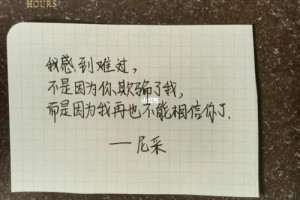 HOURS
我感到难过,
不是因为你欺骗了我,
而是因为我再也不能相信你了.
——尼采